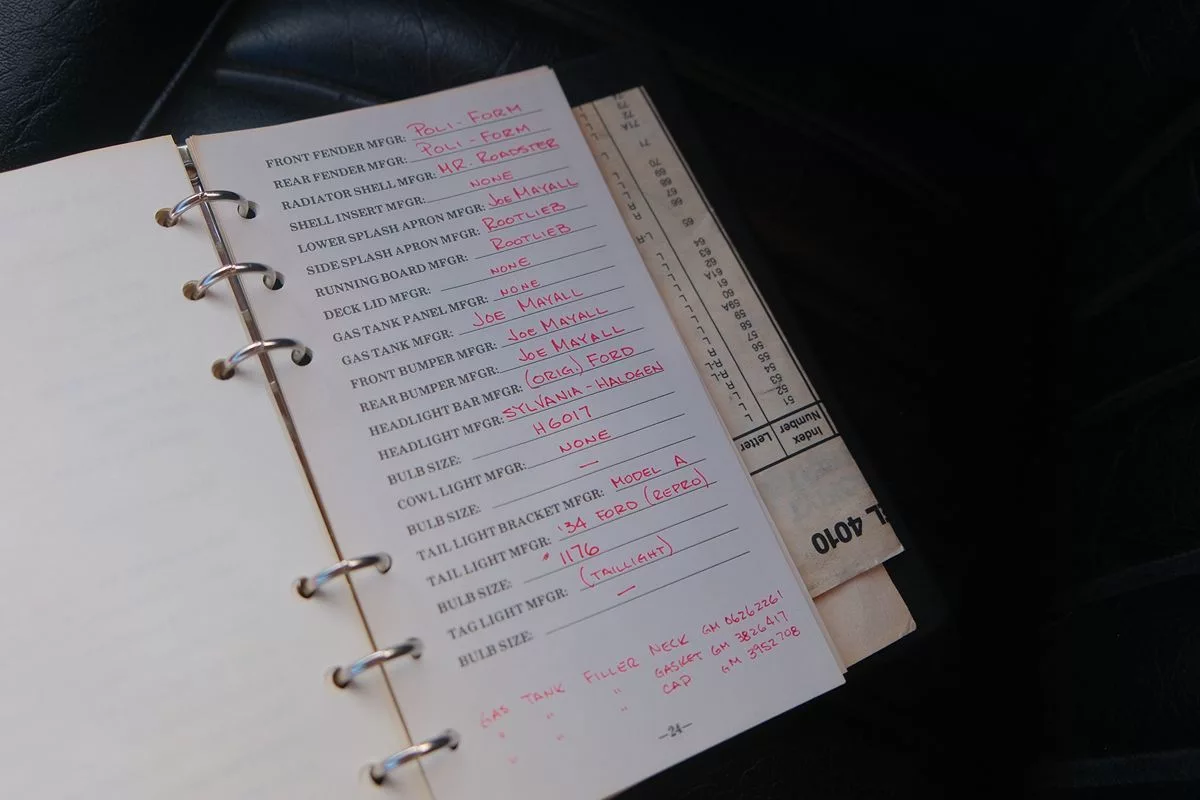 FRONT FENDER MFGR: POLI-FORM
REAR FENDER MFGR: POLI-FORM
RADIATOR SHELL MFGR: MR. ROADSTER
SHELL INSERT MFGR: NONE
LOWER SPLASH APRON MFGR: JOE MAYALL
SIDE SPLASH APRON MFGR: ROOTLIEB
RUNNING BOARD MFGR: ROOTLIEB
DECK LID MFGR: NONE
GAS TANK PANEL MFGR: NONE
GAS TANK MFGR: JOE MAYALL
FRONT BUMPER MFGR: JOE MAYALL
REAR BUMPER MFGR: JOE MAYALL
HEADLIGHT BAR MFGR: (ORIG.) FORD
HEADLIGHT MFGR: SYLVANIA-HALOGEN
BULB SIZE: H6017
COWL LIGHT MFGR: NONE
BULB SIZE: —
TAIL LIGHT BRACKET MFGR: MODEL A
TAIL LIGHT MFGR: '34 FORD (REPRO)
BULB SIZE: 1176
TAG LIGHT MFGR: (TAILLIGHT)
BULB SIZE: —
GAS TANK FILLER NECK GM 06262261
" " " GASKET GM 3826417
" " " CAP GM 3952708
—24—
4010
Index Number Letter
51
52
53
54
55
56
57
58
59
59A
60
61
61A
62
63
64
65
66
67
68
69
70
71
71A
72
73